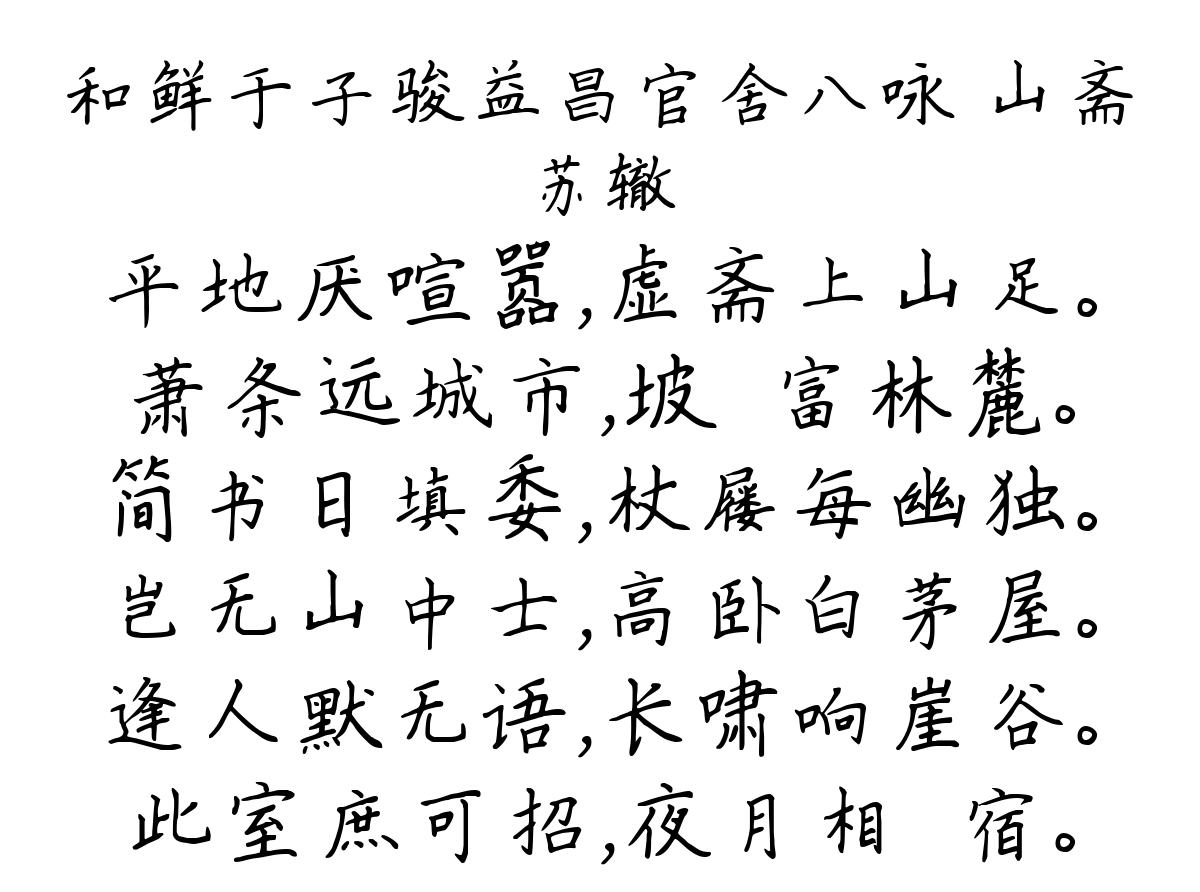 和鲜于子骏益昌官舍八咏 山斋
苏辙
平地厌喧嚣,虚斋上山足。
萧条远城市,坡 富林麓。
简书日填委,杖屦每幽独。
岂无山中士,高卧白茅屋。
逢人默无语,长啸响崖谷。
此室庶可招,夜月相 宿。